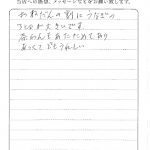 当店への感想、メッセージなどをお願い致します。
おねだんの割にうなぎの
さらが大きいです
茶わんもあたためてあり
とってもうれしい